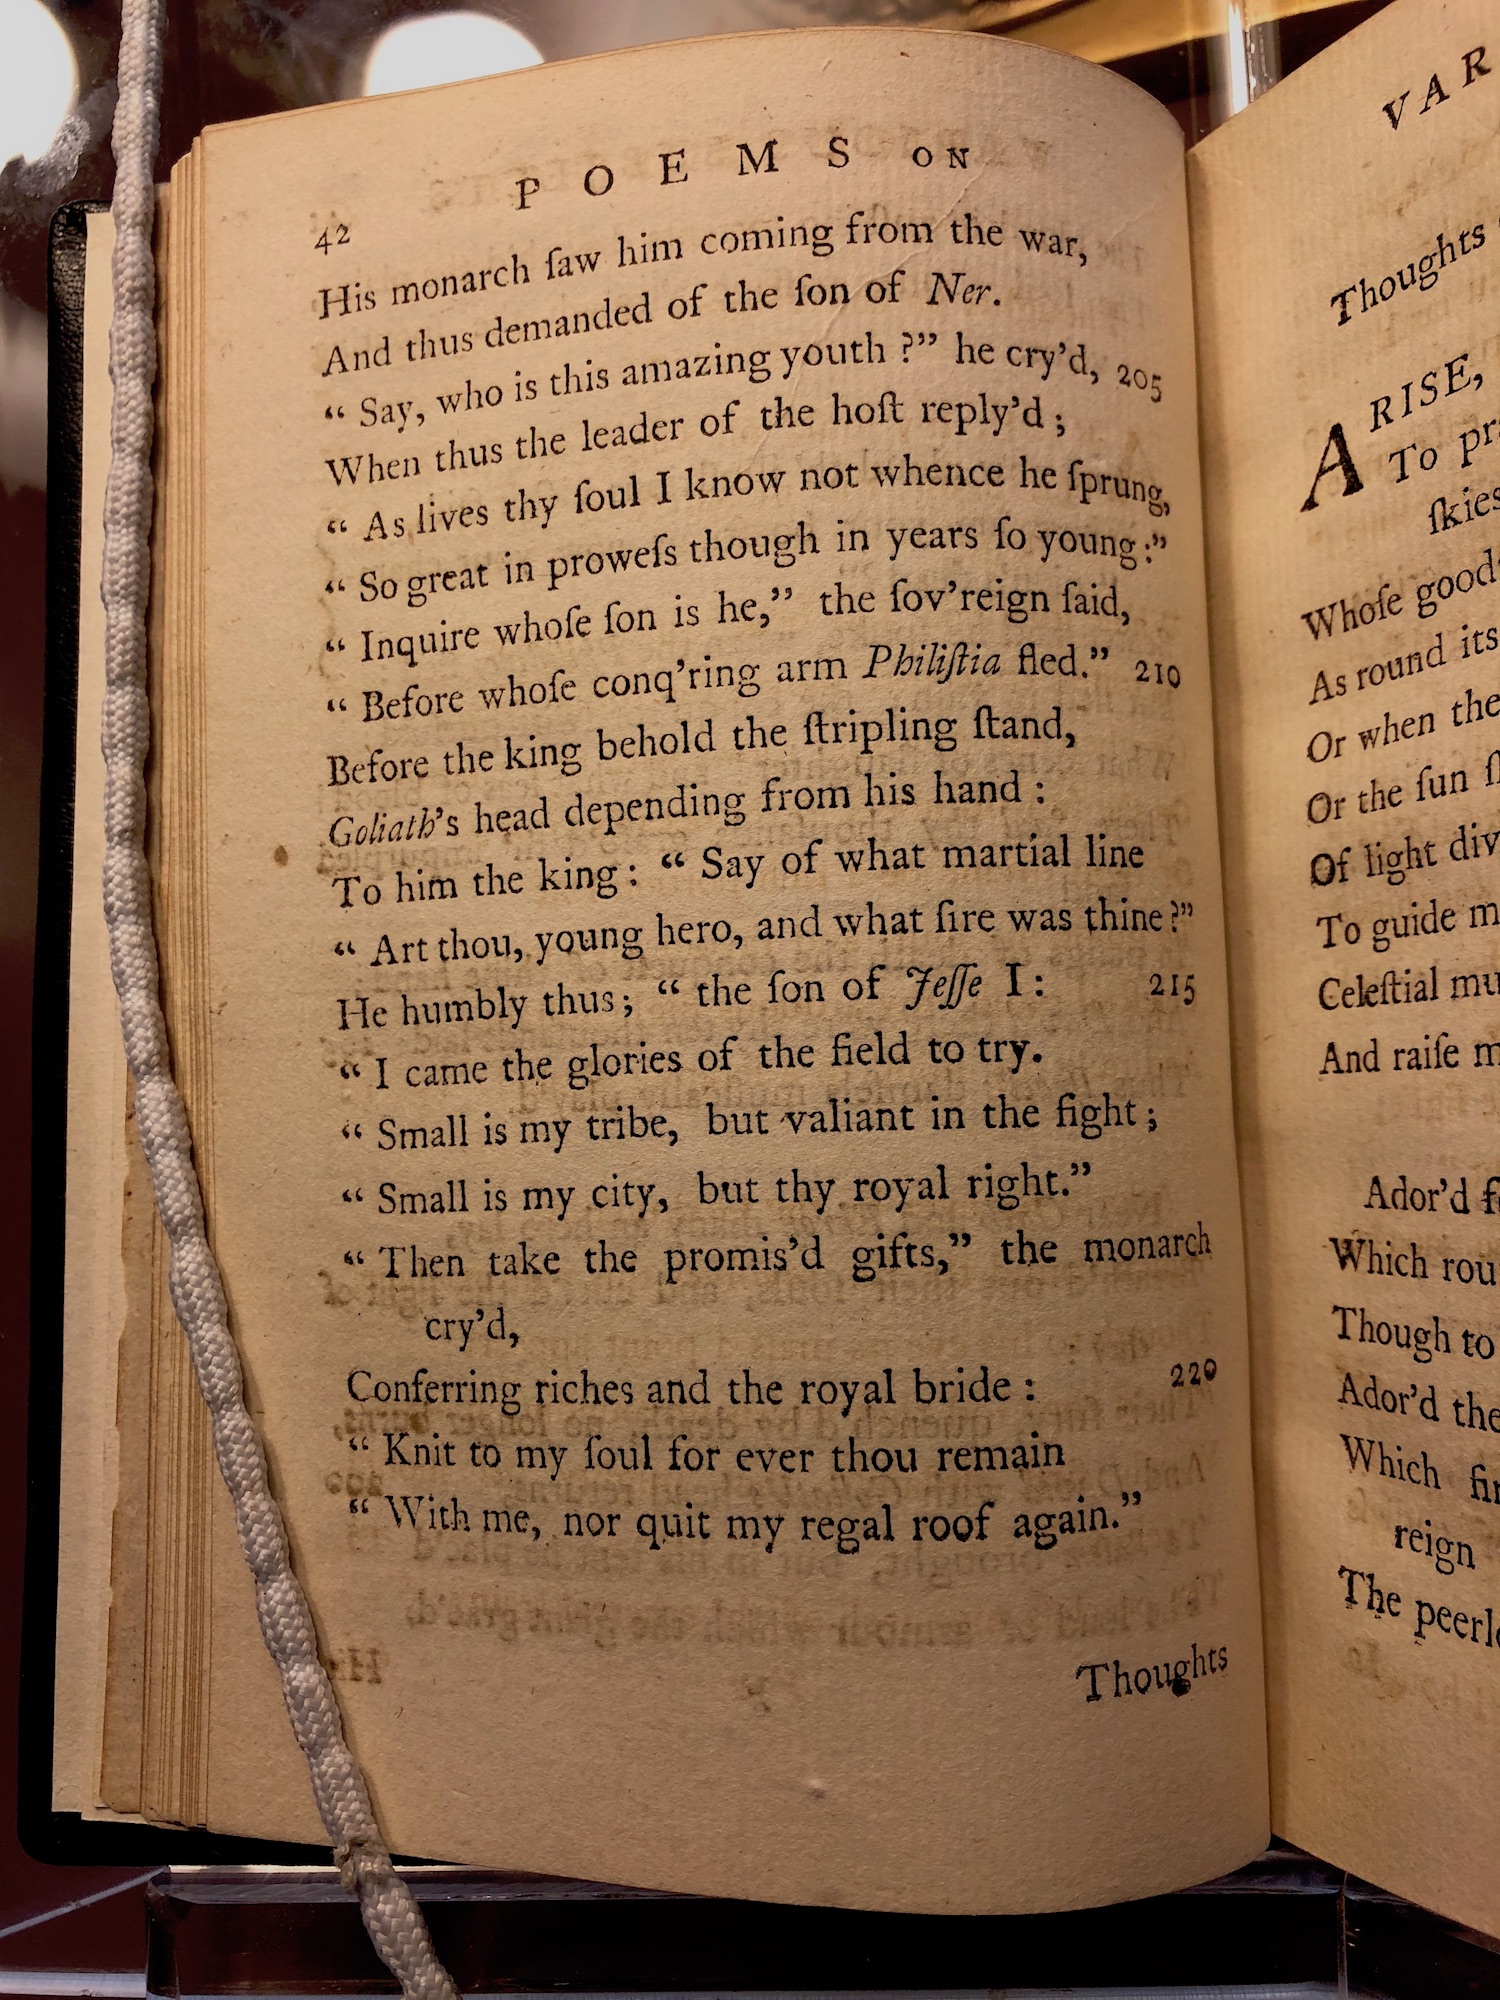 POEMS ON
42
His monarch ſaw him coming from the war,
And thus demanded of the ſon of Ner.
“ Say, who is this amazing youth ?” he cry’d, 205
When thus the leader of the hoſt reply’d ;
“ As lives thy ſoul I know not whence he ſprung,
“ So great in proweſs though in years ſo young :”
“ Inquire whoſe ſon is he,” the ſov’reign ſaid,
“ Before whoſe conq’ring arm Philiſtia fled.” 210
Before the king behold the ſtripling ſtand,
Goliath’s head depending from his hand :
To him the king : “ Say of what martial line
“ Art thou, young hero, and what ſire was thine ?”
He humbly thus ; “ the ſon of Jeſſe I : 215
“ I came the glories of the field to try.
“ Small is my tribe, but valiant in the fight ;
“ Small is my city, but thy royal right.”
“ Then take the promis’d gifts,” the monarch
cry’d,
Conferring riches and the royal bride : 220
“ Knit to my ſoul for ever thou remain
“ With me, nor quit my regal roof again.”
Thoughts
VAR
Thoughts
ARISE,
To
ſkies
Whoſe
As round its
Or when the
Or the ſun
Of light
To guide
Celeſtial
And raiſe
Ador’d
Which
Though to
Ador’d the
Which
reign
The